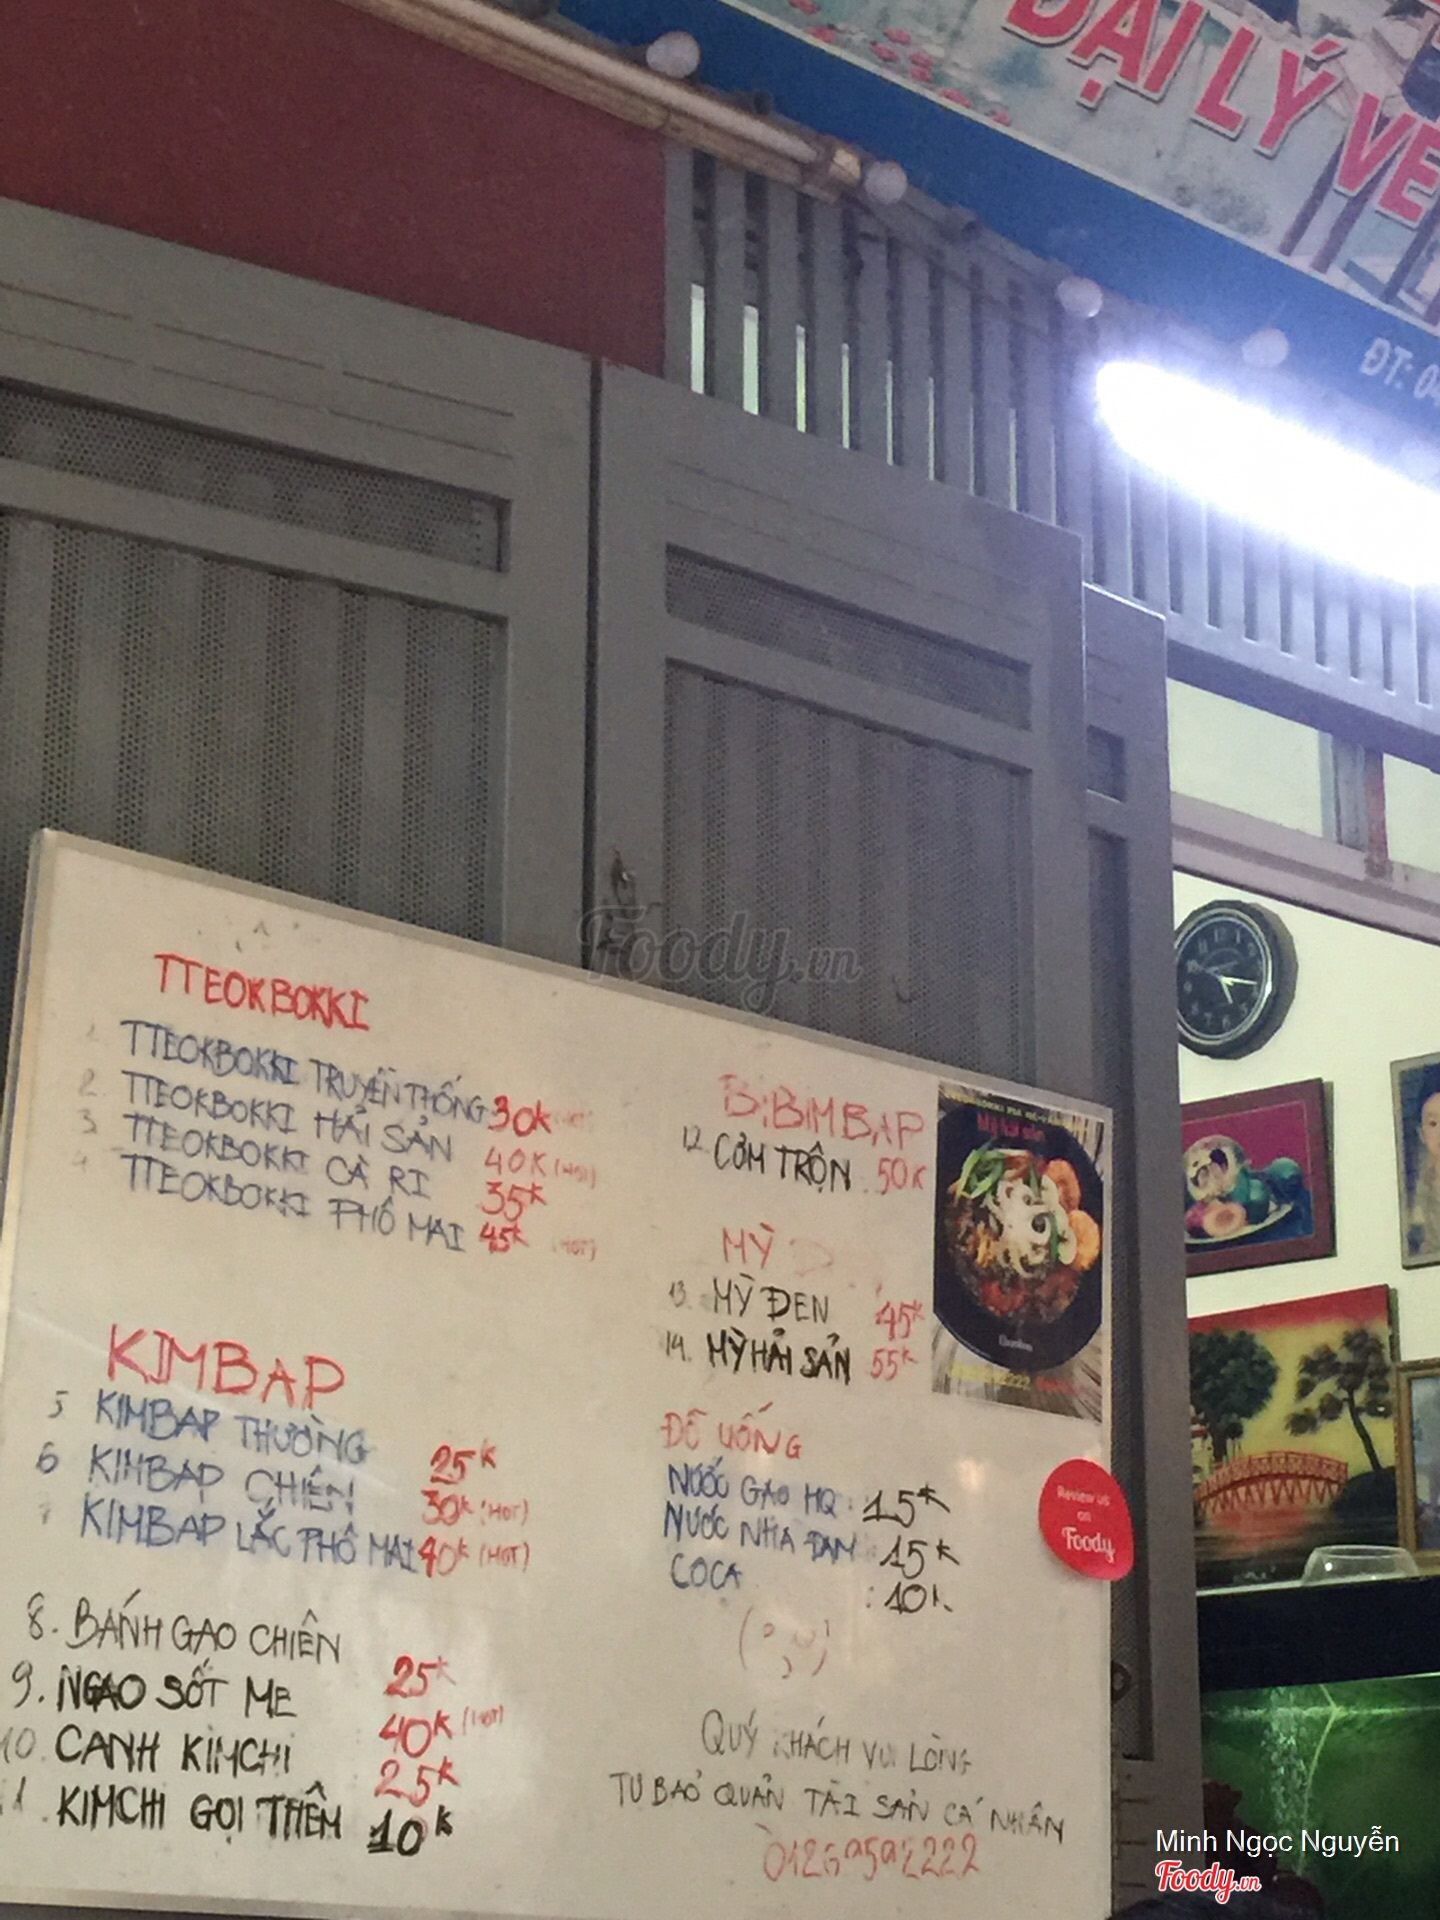 ĐẠI LÝ VÉ
ĐT: 04
Foody.vn
TTEOKBOKKI
1 TTEOKBOKKI TRUYỀN THỐNG 30K (HOT)
2. TTEOKBOKKI HẢI SẢN 40K (HOT)
3 TTEOKBOKKI CÀ RI 35K
4 TTEOKBOKKI PHÔ MAI 45K (HOT)
KIMBAP
5 KIMBAP THƯỜNG 25K
6 KIMBAP CHIÊN 30K (HOT)
7 KIMBAP LẮC PHÔ MAI 40K (HOT)
8. BÁNH GẠO CHIÊN 25K
9. NGAO SỐT ME 40K (HOT)
10. CANH KIMCHI 25K
11 KIMCHI GỌI THÊM 10K
BiBiMBAP
12. CƠM TRỘN 50K
MỲ
13. MỲ ĐEN 45K
14. MỲ HẢI SẢN 55K
ĐỒ UỐNG
NƯỚC GẠO HQ : 15K
NƯỚC NHA ĐAM : 15K
COCA : 10K
QUÝ KHÁCH VUI LÒNG
TỰ BẢO QUẢN TÀI SẢN CÁ NHÂN
Mỳ hải sản
Review us
on
Foody
Minh Ngọc Nguyễn
Foody.vn